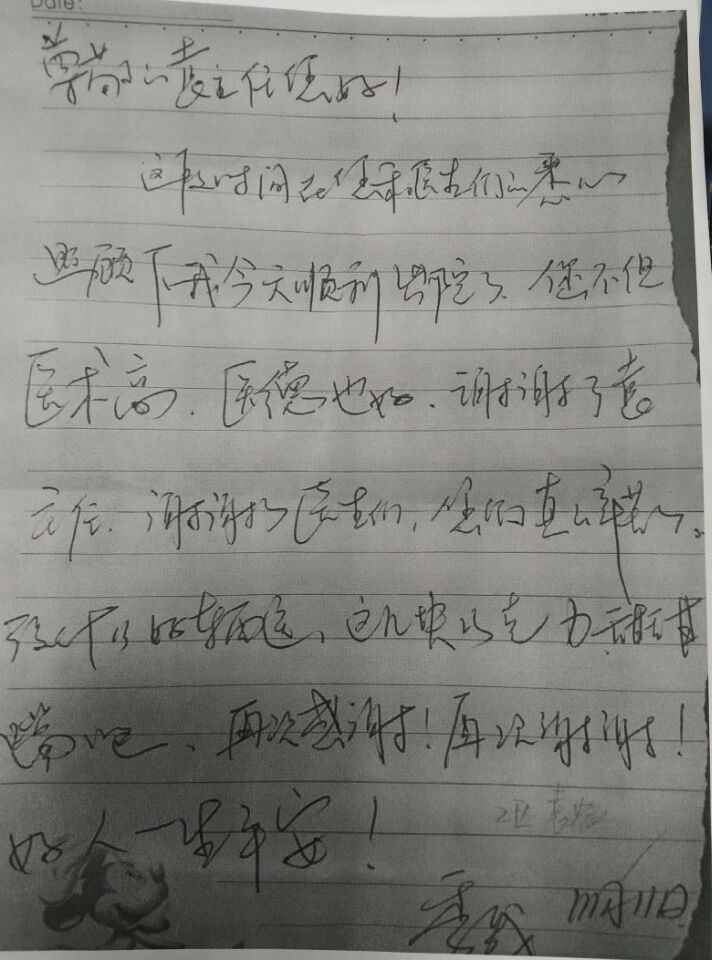 Date:
尊敬的袁主任您好!
这段时间在您和医生们的悉心
照顾下我今天顺利出院了、您不但
医术高、医德也好、谢谢了袁
主任、谢谢了医生们,您们真的辛苦了。
这几块巧克力
吧、再次感谢!再次谢谢!
好人一生平安!
2区
11月11日